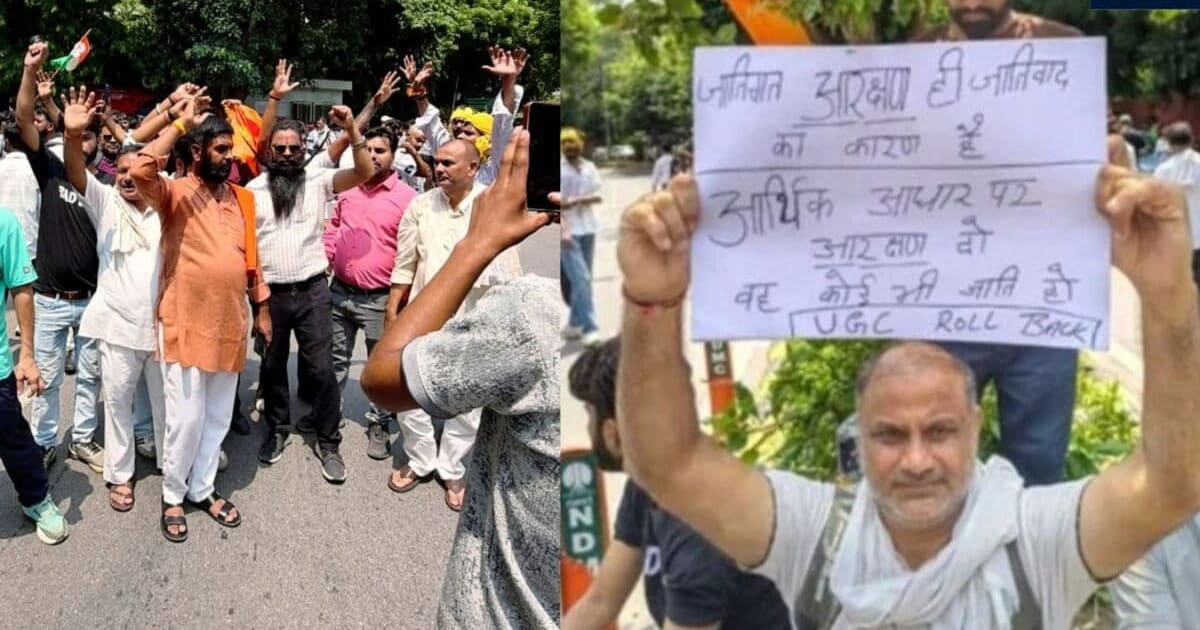 जातिगत आरक्षण ही जातिवाद
का कारण है
आर्थिक आधार पर
आरक्षण दो
वह कोई भी जाति हो
UGC ROLL BACK
NDMC